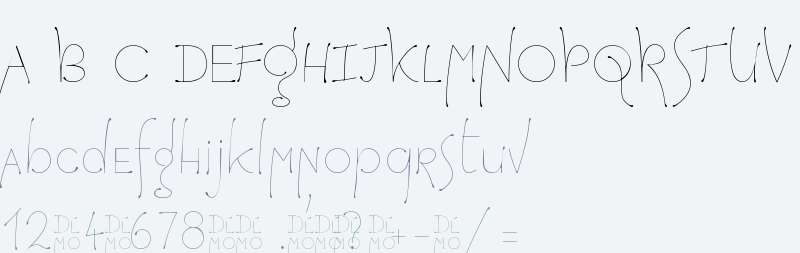 A B C DEFGHIJKLMNOPQRSTUV
AbcdEfghijklMNopqRstuV
12 DéMO 4 DéMO 678 DéMO DéMO . DéMO DéMO ? DéMO + - DéMO / =